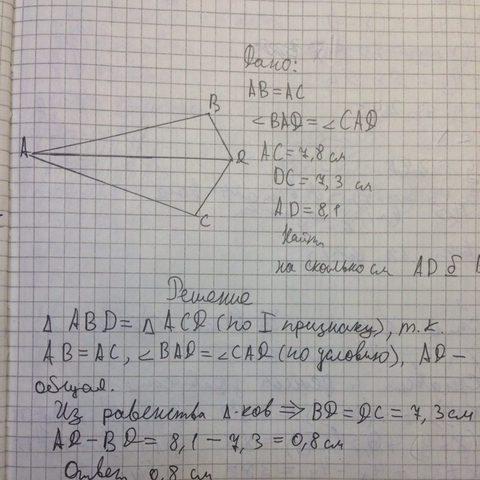 Дано:
AB = AC
∠BAD = ∠CAD
AC = 7,8 см
DC = 7,3 см
AD = 8,1
Найти
на сколько см AD б
A
B
D
C
Решение
Δ ABD = Δ ACD (по I признаку), т.к.
AB = AC, ∠BAD = ∠CAD (по условию), AD –
общая.
Из равенства Δ-ков ⇒ BD = DC = 7,3 см
AD – BD = 8,1 – 7,3 = 0,8 см
Ответ 0,8 см